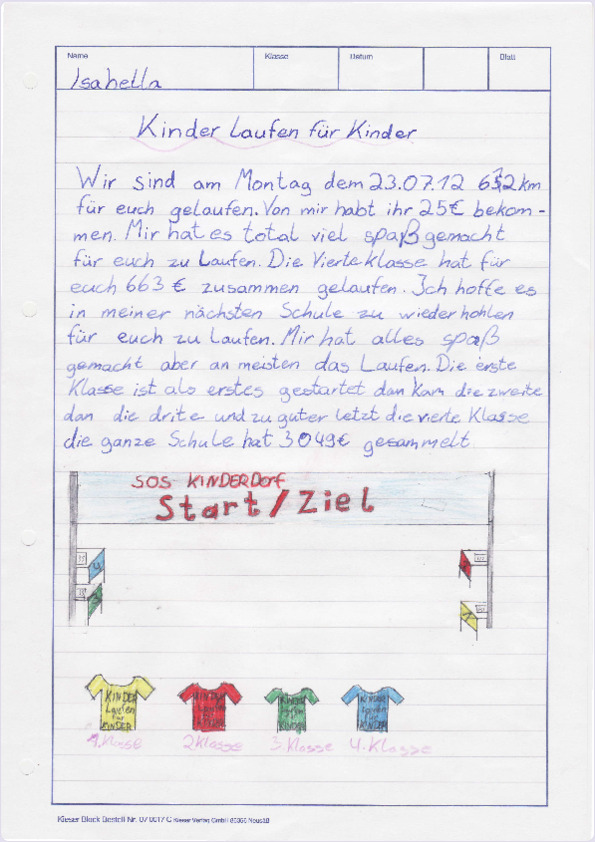 Name
Klasse
Datum
Blatt
Isabella
Kinder Laufen für Kinder
Wir sind am Montag dem 23.07.12 km
für euch gelaufen. Von mir habt ihr 25€ bekom-
men. Mir hat es total viel spaß gemacht
für euch zu Laufen. Die Vierte Klasse hat für
euch 663 € zusammen gelaufen. Ich hoffe es
in meiner nächsten Schule zu wiederhohlen
für euch zu Laufen. Mir hat alles spaß
gemacht aber an meisten das Laufen. Die erste
Klasse ist als erstes gestartet dan kam die zweite
dan die drite und zu guter letzt die vierte Klasse
die ganze Schule hat 3049€ gesammelt
SOS KINDERDorf
Start/Ziel
4
3
KINDER Laufen für KINDER
KINDER Laufen für KINDER
KINDER Laufen für KINDER
KINDER Laufen für KINDER
1. Klasse
2 Klasse
3. Klasse
4. Klasse
Kieser Block Bestell Nr. 07 0017 C Kieser Verlag GmbH 86356 Neusäß